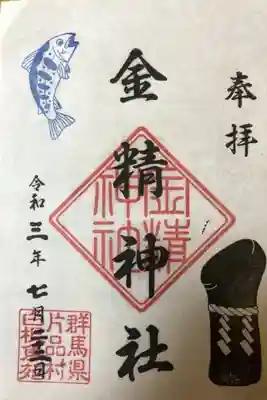 奉拝
金精神社
金精
神社
令和三年七月二十二日
群馬県
片品村